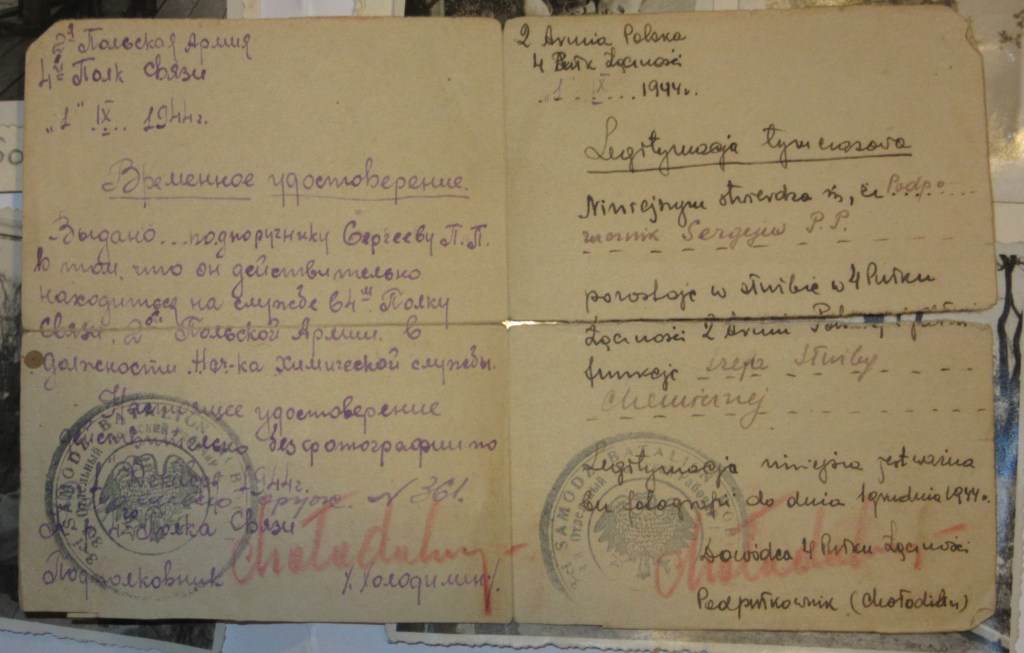 2ая Польская Армия
4ый Полк Связи
„1“ IX 1944г.
Временное удостоверение.
Выдано... подпоручнику Сергееву П.П.
в том, что он действительно
находится на службе в 4м Полку
Связи 2ой Польской Армии в
должности Нач-ка Химической службы.
Настоящее удостоверение
действительно без фотографии по
Декабря 1944г.
N 361.
4 Полка Связи
Подполковник
2 Armia Polska
4 Pułk Łączności
„1. IX ... 1944r.
Legitymacja tymczasowa
Niniejszym stwierdza się, że Podpo
rucznik Sergejew P.P.
pozostaje w służbie w 4 Pułku
Łączności 2 Armii Polskiej i pełni
funkcję szefa Służby
Chemicznej
Legitymacja niniejsza jest ważna
bez fotografii do dnia 1 grudnia 1944r.
Dowódca 4 Pułku Łączności
Podpułkownik
SAMODZ. BATALION
SAMODZ. BATALION